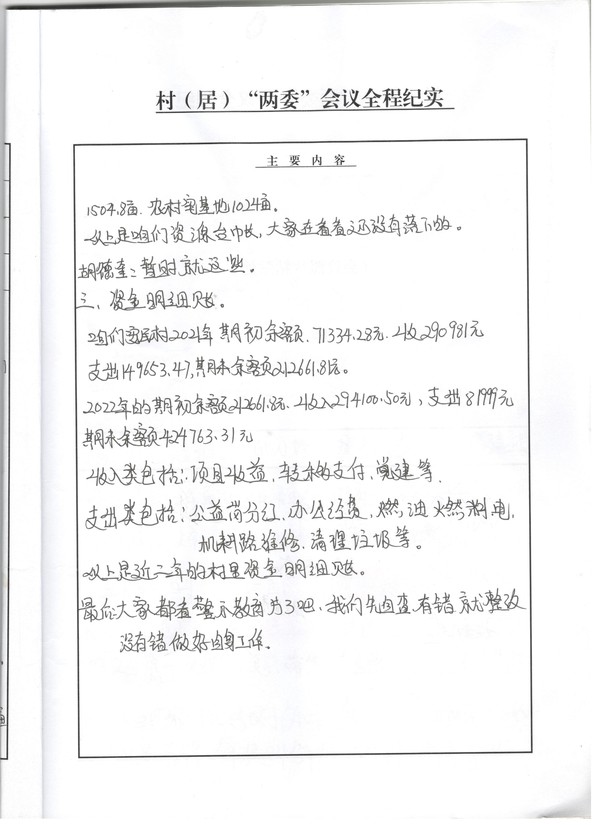 村（居）“两委”会议全程纪实
主 要 内 容
1504.8亩．农村宅基地1024亩。
以上是咱们资源台帐，大家在看看还没有落下的。
胡德奎：暂时就这些。
三、资金明细账。
咱们民村2021年期初余额．71334.28元．收290981元
支出149653.47，期末余额212661.81元。
2022年的期初余额212661.8元．收入294100.50元，支出81999元
期末余额424763.31元
收入类包括：项目收益，转移支付，党建等．
支出类包括：公益岗分红、办公经费，燃油 燃料 电，
机耕路维修、清理垃圾等。
以上是近二年的村里资金明细账。
最后大家都看警示教育片了吧，我们先自查，有错就整改
没有错做好自身工作。